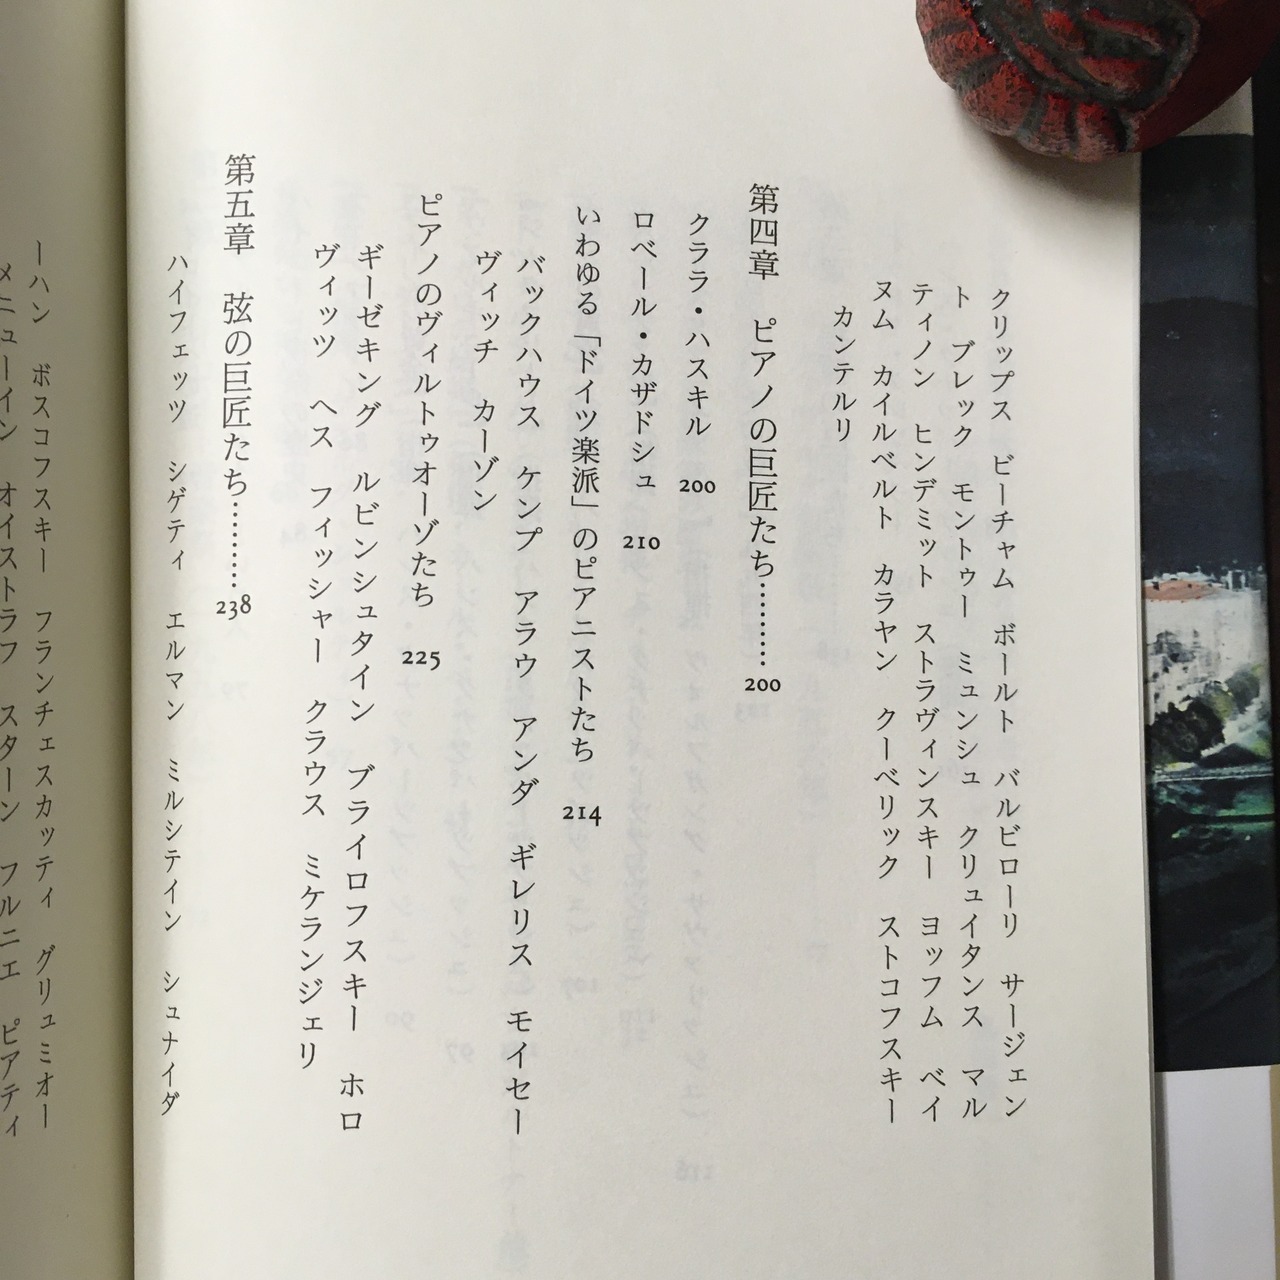 クリップス　ビーチャム　ボールト　バルビローリ　サージェン
ト　ブレック　モントゥー　ミュンシュ　クリュイタンス　マル
ティノン　ヒンデミット　ストラヴィンスキー　ヨッフム　ベイ
ヌム　カイルベルト　カラヤン　クーベリック　ストコフスキー
カンテルリ
第四章　ピアノの巨匠たち………200
クララ・ハスキル　200
ロベール・カザドシュ　210
いわゆる「ドイツ楽派」のピアニストたち　214
バックハウス　ケンプ　アラウ　アンダ　ギレリス　モイセー
ヴィッチ　カーゾン
ピアノのヴィルトゥオーゾたち　225
ギーゼキング　ルビンシュタイン　ブライロフスキー　ホロ
ヴィッツ　ヘス　フィッシャー　クラウス　ミケランジェリ
第五章　弦の巨匠たち………238
ハイフェッツ　シゲティ　エルマン　ミルシテイン　シュナイダ
ーハン　ボスコフスキー　フランチェスカッティ　グリュミオー
メニューイン　オイストラフ　スターン　フルニエ　ピアティ